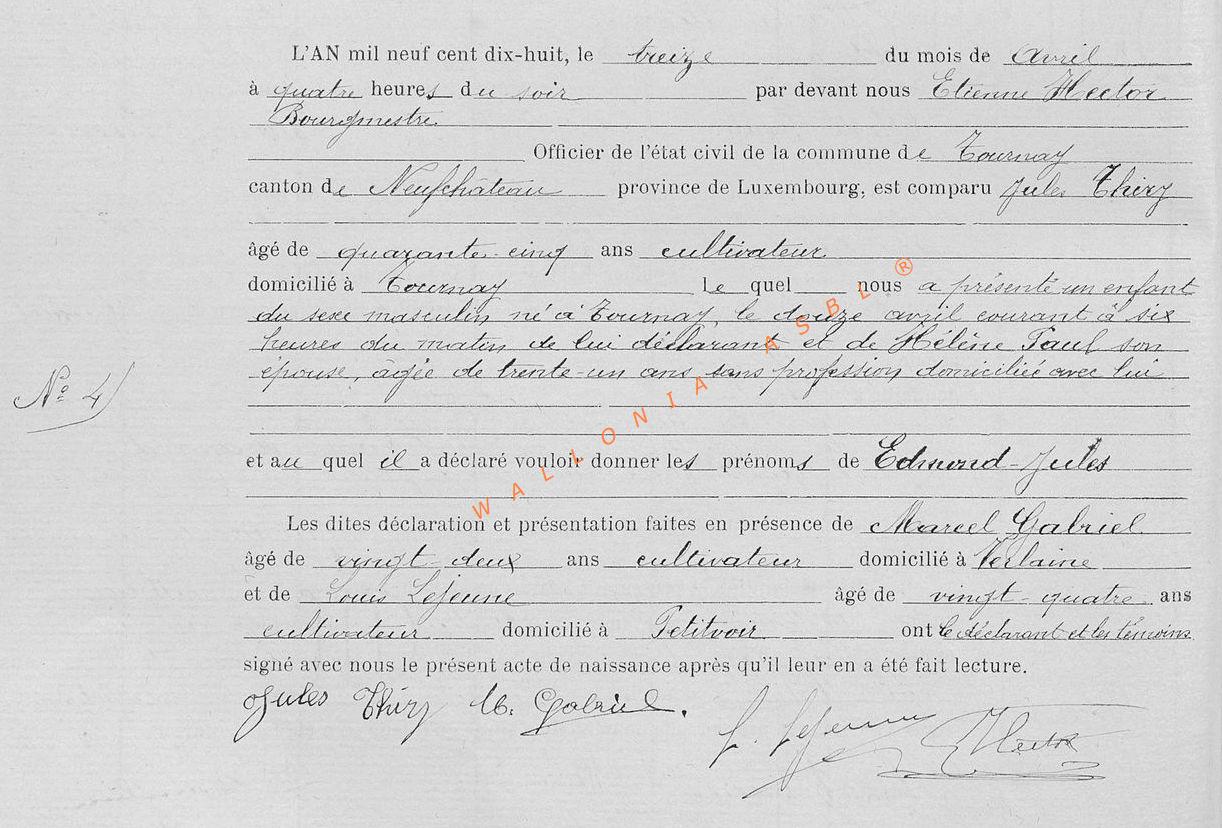 L'AN mil neuf cent dix-huit, le treize du mois de Avril
à quatre heures du soir par devant nous Etienne Hector
Bourgmestre
Officier de l'état civil de la commune de Tournay
canton de Neufchâteau province de Luxembourg, est comparu Jules Thiry
âgé de quarante-cinq ans cultivateur
domicilié à Tournay Le quel nous a présenté un enfant
du sexe masculin né à Tournay, le douze avril courant à six
heures du matin de lui déclarant et de Hélène Paul son
épouse, âgée de trente-un ans sans profession domiciliée avec lui
Nº 4
et au quel il a déclaré vouloir donner les prénoms de Edmond-Jules
Les dites déclaration et présentation faites en présence de Marcel Gabriel
âgé de vingt-deux ans cultivateur domicilié à Verlaine
et de Louis Lejeune âgé de vingt-quatre ans
cultivateur domicilié à Petitvoir ont le déclarant et les témoins
signé avec nous le présent acte de naissance après qu'il leur en a été fait lecture.
Jules Thiry M. Gabriel.
L. Lejeune E Hector
WALLONIA ASBL ®